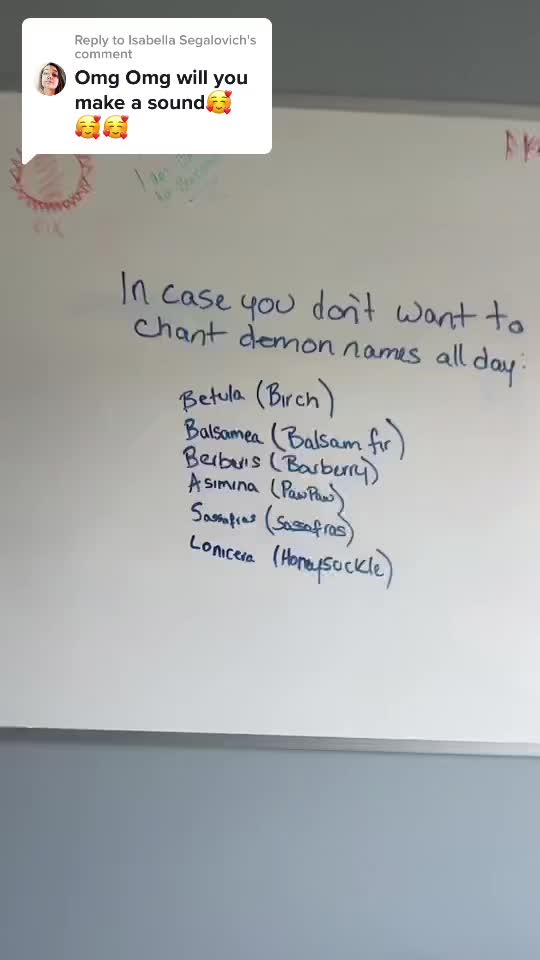 Reply to Isabella Segalovich's
comment
Omg Omg will you
make a sound🥰
🥰🥰
In case you don't want to
chant demon names all day:
Betula (Birch)
Balsamea (Balsam fir)
Berberis (Barberry)
Asimina (PawPaw)
Sassafras (Sassafras)
Lonicera (Honeysuckle)